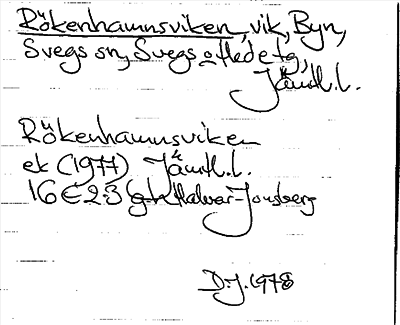 Rökenhamnsviken, vik, Byn,
Svegs sn, Svegs o Hede tg,
Jämtl. l.
Rökenhamnsviken
ek (1977) Jämtl. l.
16 E 2-3 g-h Halvar-Jonsberg
D.J. 1978